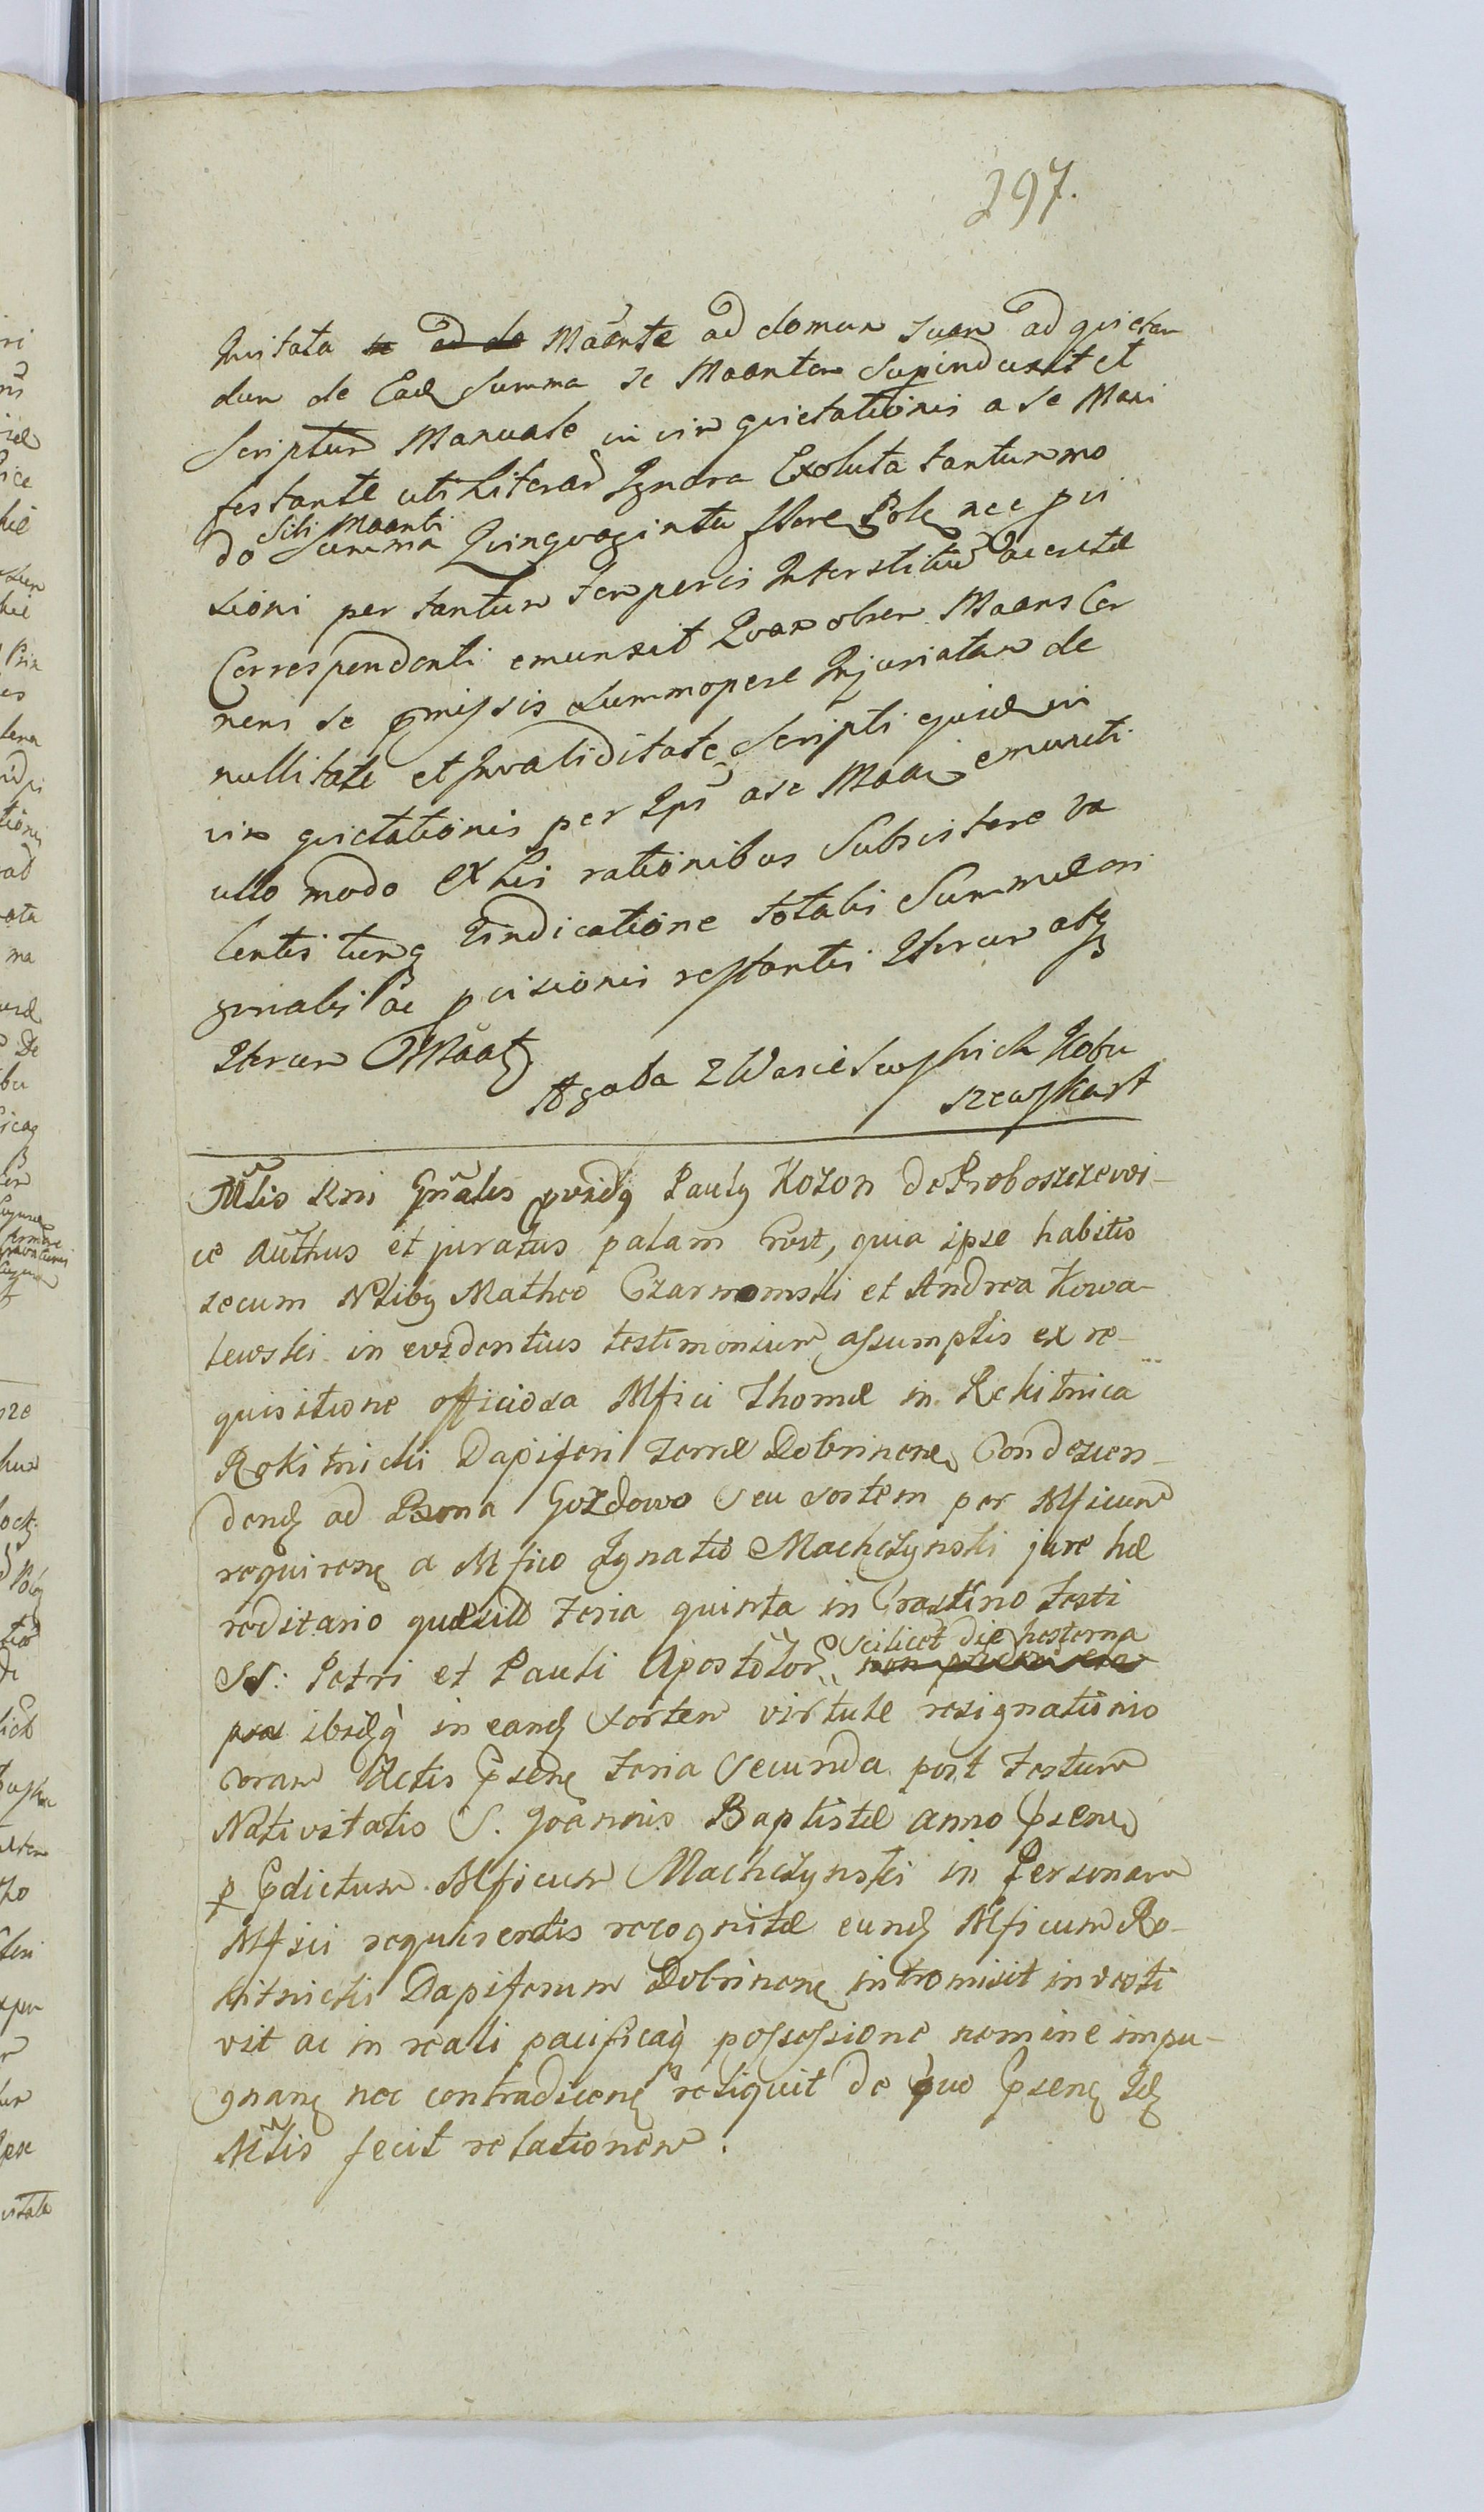 297.
Invitata se ad do Maante ad domum suam ad quietan
dum de Ead Summa se Maantem Supinduxit et
Scriptum Manuale in vim quietationis a se Mani
festante uti Literar Ignara Exoluta tantummo
do Sibi Maanti Summa Quinquaginta flore Pole nec pvi
sioni per tantum temporis Interstitium accretae
Correspondenti emunxit Quam obrem Maans Cer
nens se pmissis summopere Injuriatam de
nullitate et Invaliditate Scripti ejusd in
vim quietationis per Ips a se Maan emuncti
ullo modo ex his rationibus Subsistere va
lentis tumq Vindicatione totalis Summae ori
ginalis ac pvisionis restantis Iterum atq
Iterum Maat
Agata z Wasielewskich Kobu
szewska st
Mlis Rni Gnalis pvidq Paulq Kozon de Proboszczewi-
ce Authus et juratus palam rvit, quia ipse habitis
secum Nblibq Matheo Czarnomski et Andrea Kowa-
lewski in evidentius testimonium assumptis ex re-
quisitione officiosa Mfici Thomae in Rokitnica
Rokitnicki Dapiferi Terrae Dobrinene Condescen-
dend ad Bona Gozdowo Seu sortem per Mficum
requirene a Mfico Ignatio Machczynski jure hae
reditario quaesitae Feria quinta in Crastino Festi
SS: Petri et Pauli Apostolor scilicet die hesterna
ibidq in eand sortem virtute resignationis
coram Actis psene Feria Secunda post Festum
Nativitatis S. Joannis Baptistae anno psene
p pdictum Mficum Machczynski in Personam
Mfici requirentis recognitae eund Mficum Ro-
kitnicki Dapiferum Dobrinene intromisit investi
vit ac in reali pacificaq possessione nemine impu-
gnane nec contradicene reliquit de quo psene Id
Mlis fecit relationem.